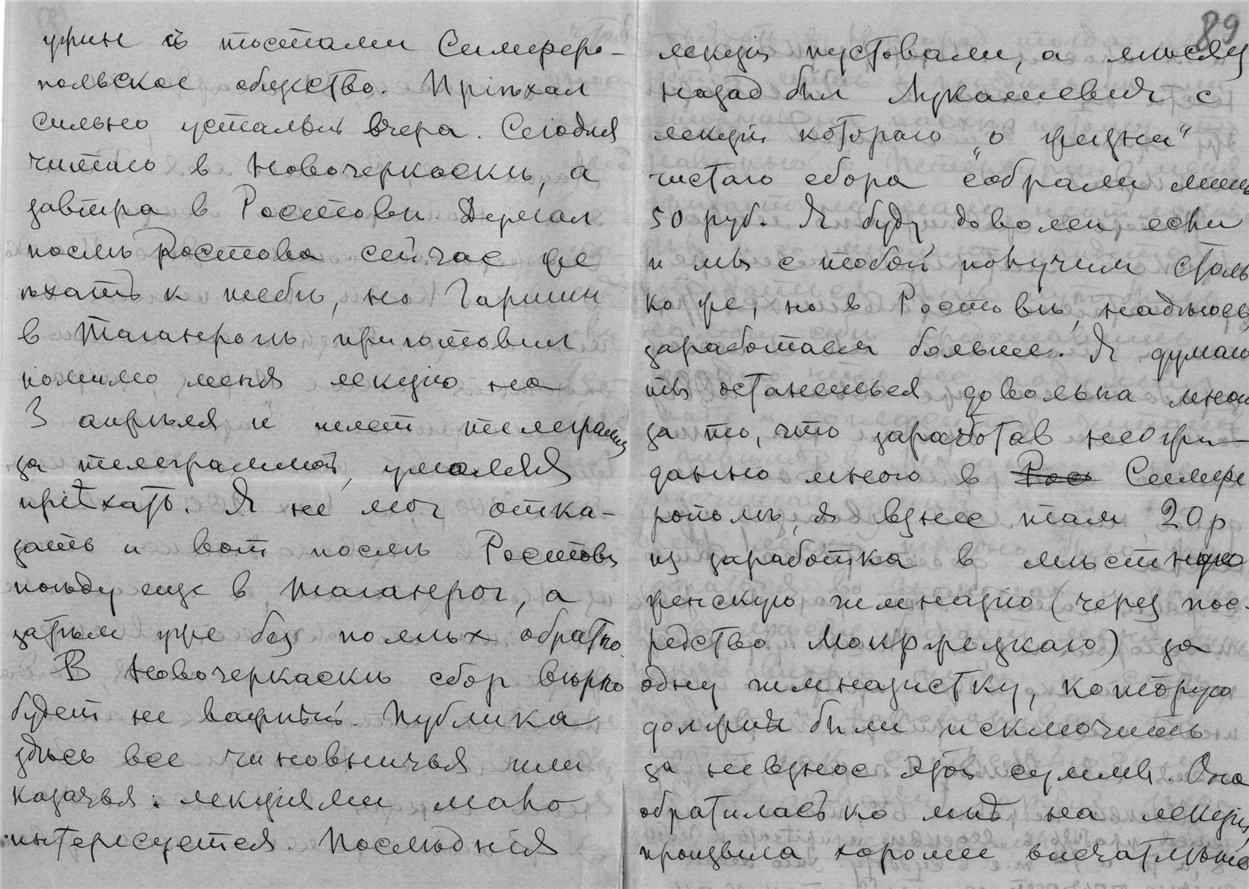 ужин съ тостами Симферо-
польское общество. Пріѣхал
сильно усталый вчера. Сегодня
читаю в Новочеркаскѣ, а
завтра в Ростовѣ. Думал
послѣ Ростова сейчас же
ѣхать к тебѣ, но Гаршин
в Таганрогѣ приготовил
помимо меня лекцію на
3 апрѣля и шлет телеграмму
за телеграммой, умоляя
пріѣхать. Я не мог отка-
зать и вот послѣ Ростова
поѣду еще в Таганрог, а
затѣм уже без
обратно.
В Новочеркаскѣ сбор вѣрно
будет не важный. Публика
здѣсь все чиновничья или
казачья. лекціями мало
интересуется Послѣднія
89
лекціи пустовали, а мѣсяц
назад был Лукашевич с
лекціи котораго „о жизни“
чистаго сбора собрали лишь
50 руб. Я буду доволен если
и мы с тобой получим столь
ко же, но в Ростовѣ, надѣюсь
заработаем больше. Я думаю
ты останешься довольна мной
за то, что заработав неожи-
данно много в Рос Симфе
рополѣ, я внес там 20 р
из заработка в мѣстную
женскую гимназію (через пос-
редство Мокржецкаго) за
одну гимназистку, которую
должны были исключить
за невзнос этой суммы. Она
обратилась ко мнѣ на лекціи,
произвела хорошее впечатлѣніе